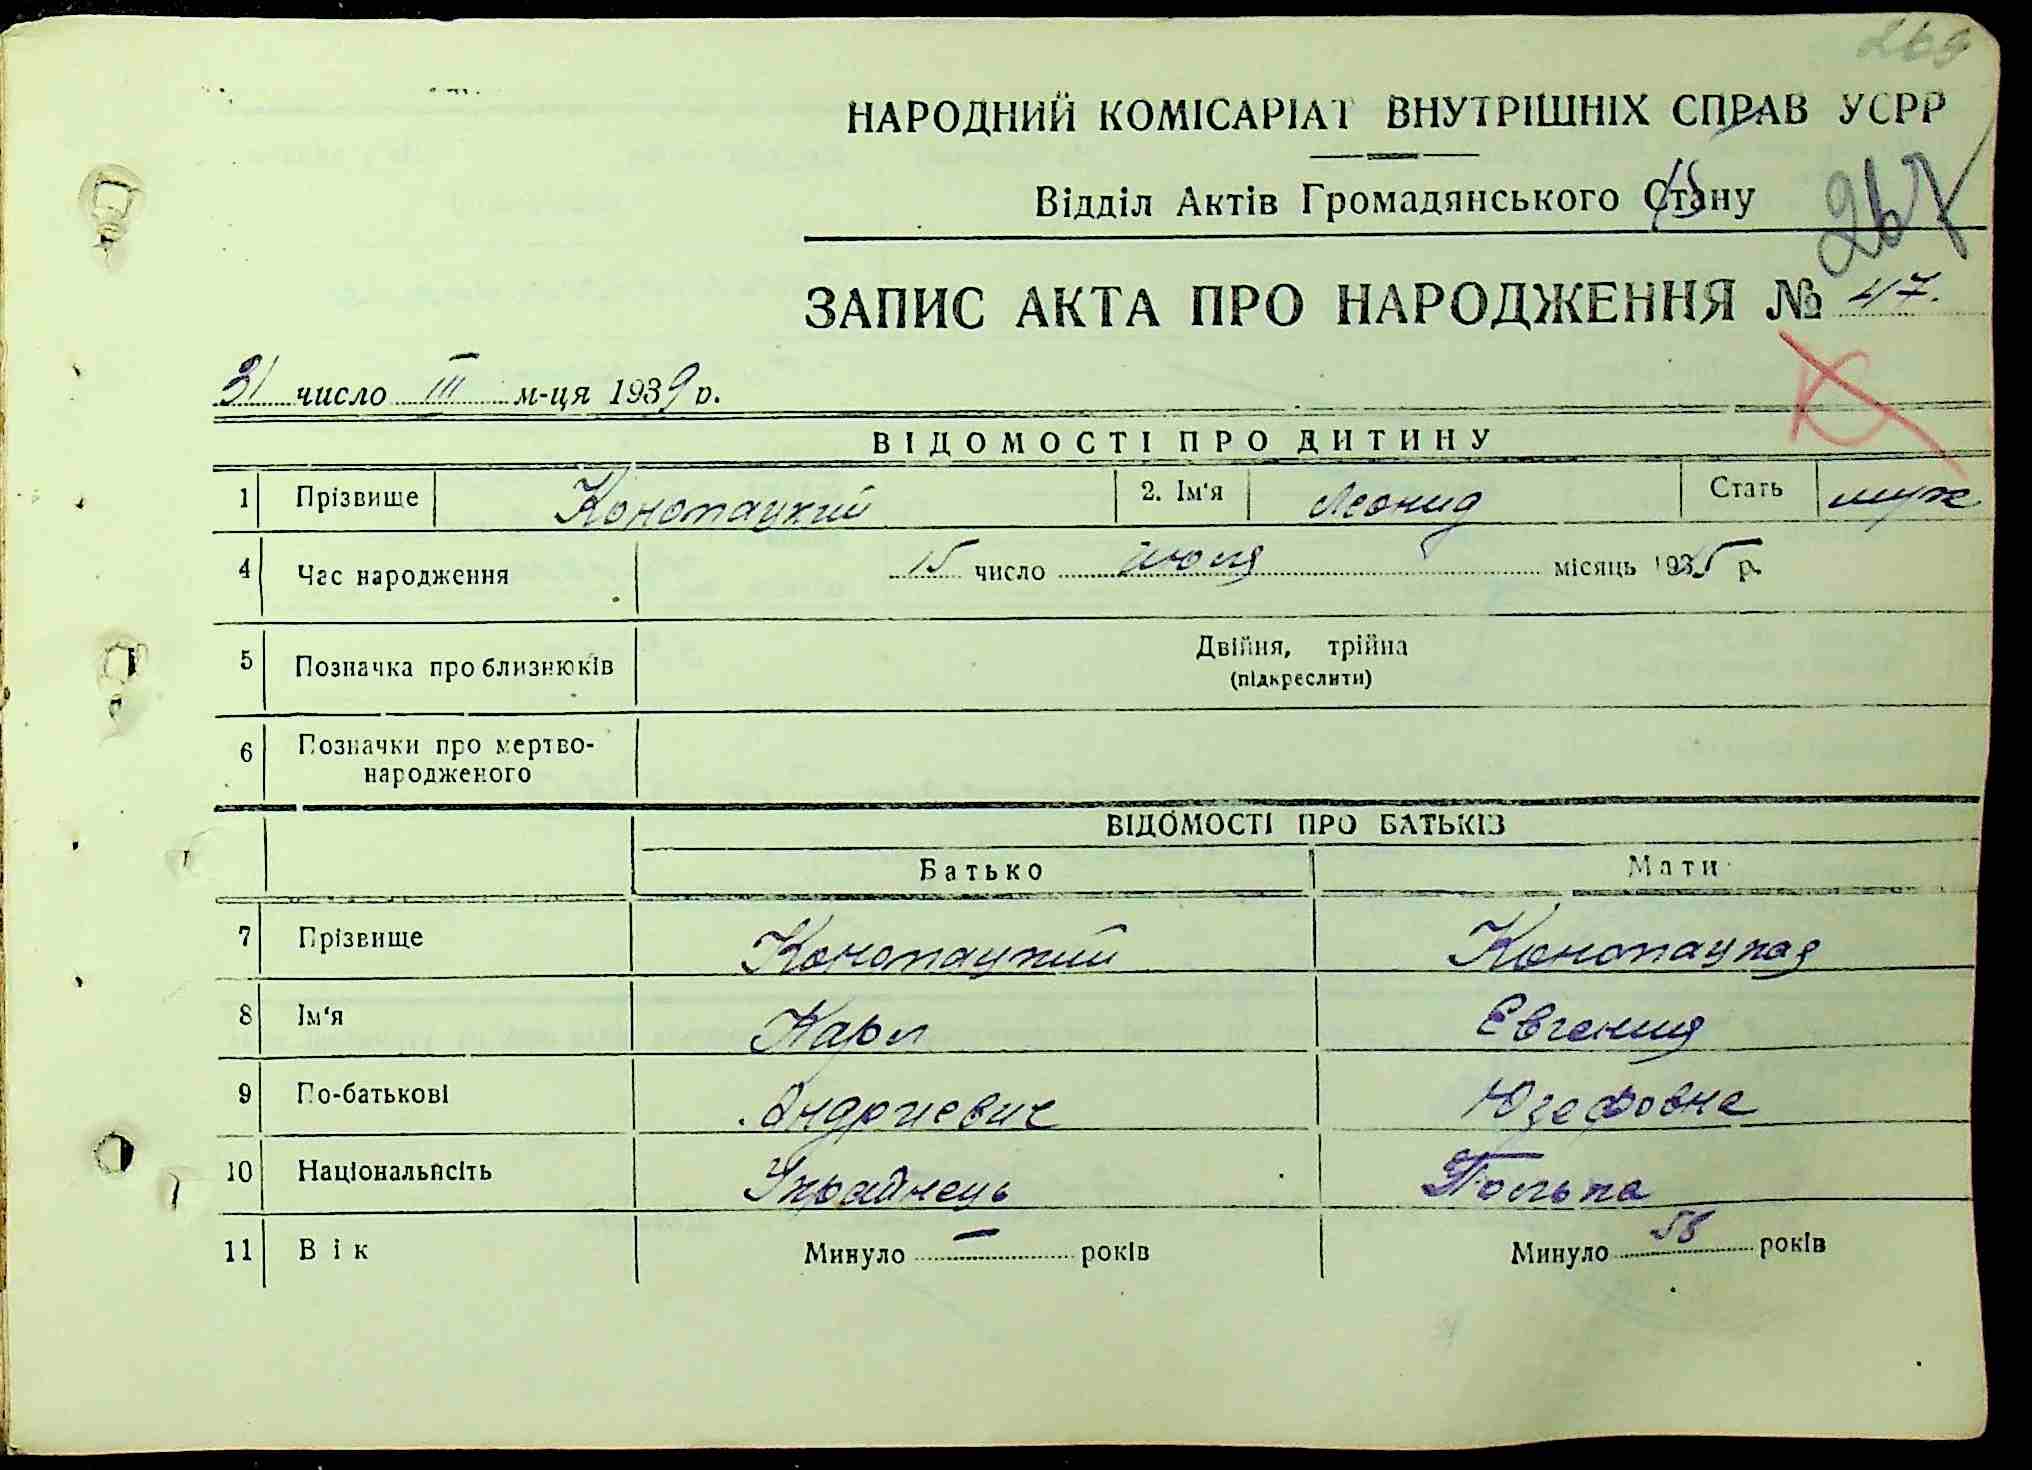 269
НАРОДНИЙ КОМІСАРІАТ ВНУТРІШНІХ СПРАВ УСРР
Відділ Актів Громадянського Стану
267
ЗАПИС АКТА ПРО НАРОДЖЕННЯ № 47.
31 число III м-ця 1939 р.
ВІДОМОСТІ ПРО ДИТИНУ
1 Прізвище Конопацкий 2. Ім'я Леонид Стать муж
4 Час народження 15 число июля місяць 1935 р.
5 Позначка про близнюків Двійня, трійна
(підкреслити)
6 Позначки про мертво-
народженого
ВІДОМОСТІ ПРО БАТЬКІВ
Батько Мати
7 Прізвище Конопацкий Конопацкая
8 Ім'я Карл Евгения
9 По-батькові Андриевич Юзефовна
10 Національність Українець Полька
11 Вік Минуло — років Минуло років